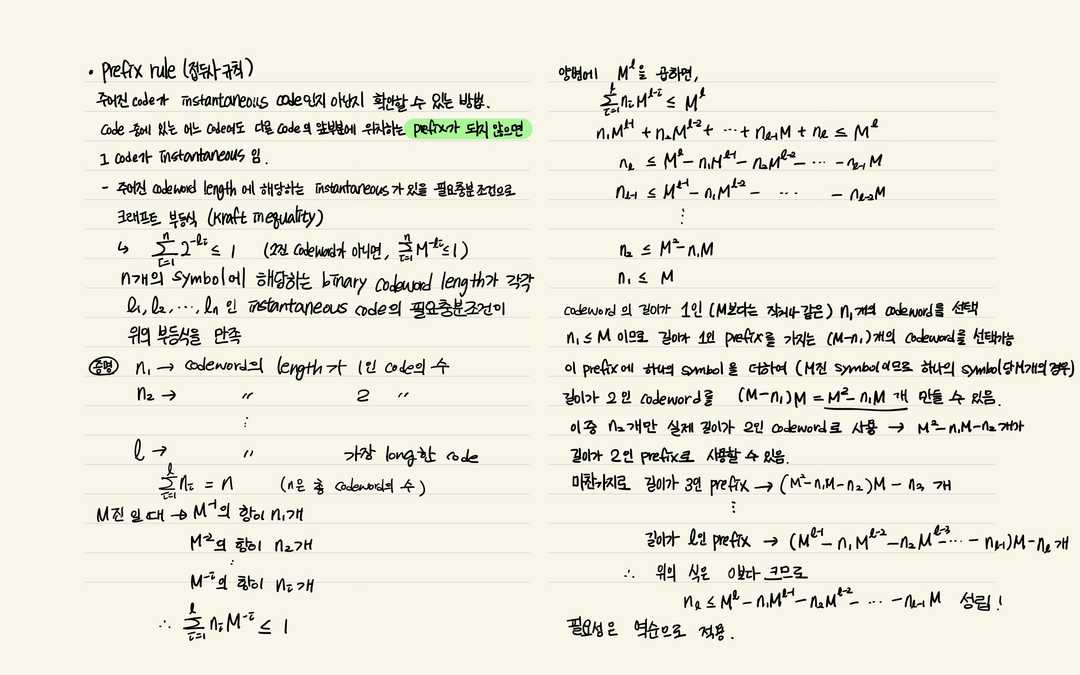 • prefix rule (접두사 규칙)
주어진 code가 instantaneous code인지 아닌지 확인할 수 있는 방법.
code 중에 있는 어느 code에도 다른 code의 앞부분에 위치하는 prefix가 되지 않으면
그 code가 instantaneous 임.
- 주어진 codeword length에 해당하는 instantaneous가 있을 필요충분조건으로
크래프트 부등식 (Kraft inequality)
↳ \sum_{i=1}^{n} 2^{-l_i} ≤ 1 (2진 codeword가 아니면, \sum_{i=1}^{n} M^{-l_i} ≤ 1)
n개의 symbol에 해당하는 binary codeword length가 각각
l₁, l₂, ⋯, lₙ 인 instantaneous code의 필요충분조건이
위의 부등식을 만족
증명 n₁ → codeword의 length가 1인 code의 수
n₂ → 〃 2 〃
⋮
l → 〃 가장 long한 code
\sum_{i=1}^{l} n_i = n (n은 총 codeword의 수)
M진일 때 → M^{-1}의 항이 n₁개
M^{-2}의 항이 n₂개
⋮
M^{-i}의 항이 n_i개
∴ \sum_{i=1}^{l} n_i M^{-i} ≤ 1
양변에 M^l을 곱하면,
\sum_{i=1}^{l} n_i M^{l-i} ≤ M^l
n₁M^{l-1} + n₂M^{l-2} + ⋯ + n_{l-1}M + n_l ≤ M^l
n_l ≤ M^l - n₁M^{l-1} - n₂M^{l-2} - ⋯ - n_{l-1}M
n_{l-1} ≤ M^{l-1} - n₁M^{l-2} - ⋯ - n_{l-2}M
⋮
n₂ ≤ M² - n₁M
n₁ ≤ M
codeword의 길이가 1인 (M보다는 작거나 같은) n₁개의 codeword를 선택
n₁ ≤ M 이므로 길이가 1인 prefix를 가지는 (M-n₁)개의 codeword를 선택가능
이 prefix에 하나의 symbol을 더하여 (M진 symbol이므로 하나의 symbol당 M개의 경우)
길이가 2인 codeword를 (M-n₁)M = M² - n₁M 개 만들 수 있음.
이 중 n₂개만 실제 길이가 2인 codeword로 사용 → M² - n₁M - n₂개가
길이가 2인 prefix로 사용할 수 있음.
마찬가지로 길이가 3인 prefix → (M² - n₁M - n₂)M - n₃ 개
⋮
길이가 l인 prefix → (M^{l-1} - n₁M^{l-2} - n₂M^{l-3} - ⋯ - n_{l-1})M - n_l 개
∴ 위의 식은 0보다 크므로
n_l ≤ M^l - n₁M^{l-1} - n₂M^{l-2} - ⋯ - n_{l-1}M 성립!
필요성은 역순으로 적용.